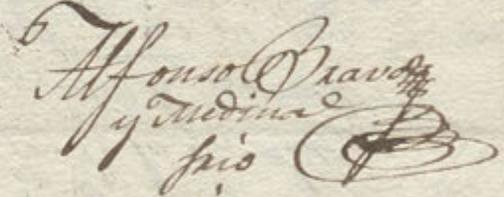 Alfonso Bravo
y Medina
srio